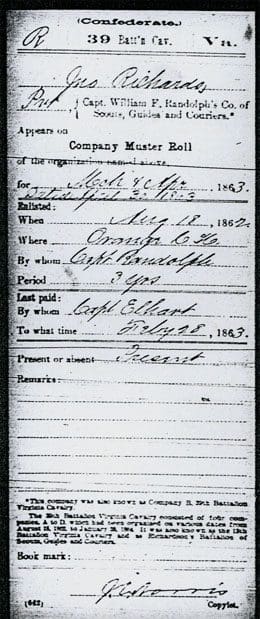 (Confederate.)
R 39 Batt'n Cav. Va.
Jno Richards
Pvt, { Capt. William F. Randolph's Co. of
Scouts, Guides and Couriers.*
Appears on
Company Muster Roll
of the organization named above,
for Mch & Apl, 1863.
1863
Enlisted:
When Aug 18, 1862
Where Orange C. H.
By whom Capt Randolph
Period 3 yrs
Last paid:
By whom Capt Elhart
To what time Feby 28, 1863.
Present or absent Present
Remarks:
*This company was also known as Company B, 39th Battalion
Virginia Cavalry.
The 39th Battalion Virginia Cavalry consisted of four com-
panies, A to D, which had been organized on various dates from
August 18, 1862, to January 1864. It was also known as the 13th
Battalion Virginia Cavalry and as Richardson's Battalion of
Scouts, Guides and Couriers.
Book mark:
Morris
(642) Copyist.